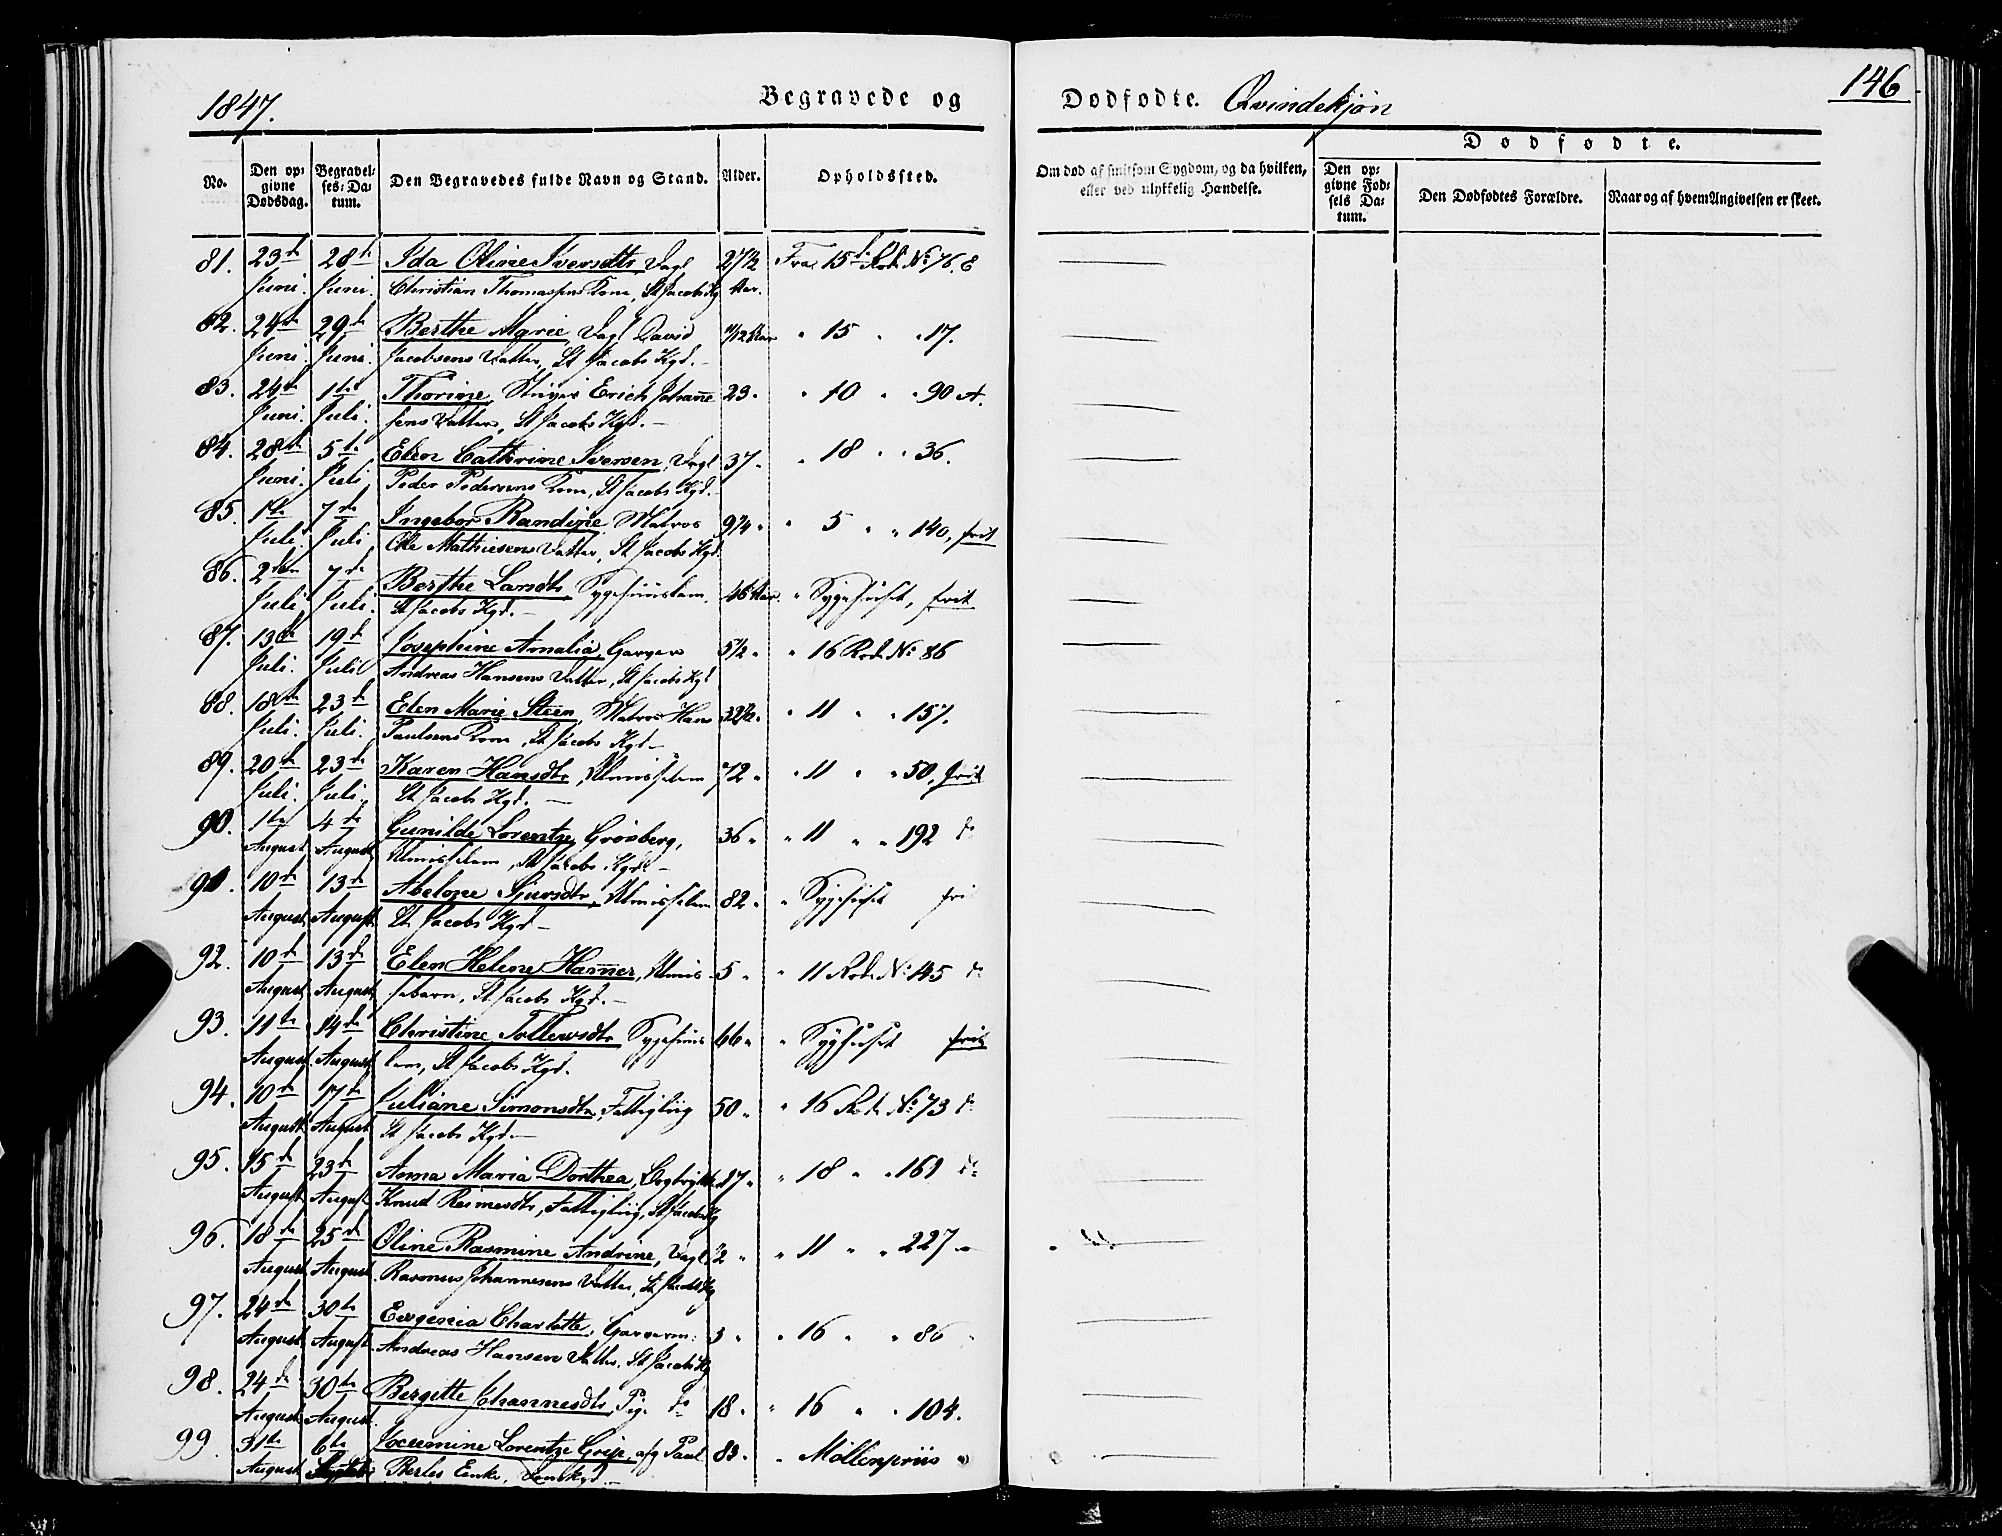 146
1847. Begravede og Dødfødte. Qvindekjøn
Dødfødte.
No. Den opgivne Dødsdag. Begravelses-Datum. Den Begravedes fulde Navn og Stand. Alder. Opholdssted. Om død af smitsom Sygdom, og da hvilken, eller ved ulykkelig Hændelse. Den opgivne Fødsels Datum. Den Dødfødtes Forældre. Naar og af hvem Angivelsen er skeet.
81. 23d 28d Ida Oline Iversdtr, Dagl. 27½ Fra 15d Rode No 76. E
Juni. Juni. Christian Thomassens Kone, St Jacobs Kg. Aar.
82. 24d 29d Berthe Marie, Dagl David 11/12 Aar " 15 " " 17.
Juni Juni. Jacobsens Datter, St Jacobs Kgd.
83. 24d 1te Thorine, Erich Johanne 23 " " 10 " " 90 A.
Juni. Juli. sens Datter, St Jacobs Kgd.
84. 28d 5te Elen Cathrine Iversen, Dagl 37 " " 18 " " 36.
Juni. Juli. Peder Pedersens Kone, St Jacobs Kgd.
85. 1te 7de Ingebor Randine, Matros 9¼ " " 5 " " 140, frit
Juli. Juli Ole Mathiesens Datter, St Jacobs Kgd.
86. 2den 7de Berthe Larsdtr, Sygehuuslem, 46 Aar. " Sygehuset, frit
Juli Juli. St Jacobs Kgd.
87. 13d 19d Josephine Amalia, Garver 5½ " " 16 Rode No 86
Juli. Juli Andreas Hansens Datter, St Jacobs Kgd
88. 18d 23d Elen Marie Steen, Matros Hans 32½ " " 11 " " 157.
Juli. Juli. Paulsens Kone, St Jacobs Kgd
89. 20d 23d Karen Hansdtr, Almisselem 72 " " 11 " " 50, frit
Juli. Juli. St Jacobs Kgd.
90. 1te 4de Gunilde Lorentze Grønberg, 36 " " 11 " " 192 do
August August Almisselem, St Jacobs Kgd
91. 10d 13d Abelone Sjursdtr, Almisselem 82 " " Sygehuset fri
August August. St Jacobs Kgd
92. 10d 13d Elen Helene Hammer, Almis 5 " " 11 Rode No 145 do
August August sebarn, St Jacobs Kgd.
93. 11te 14de Christine Tollevsdtr Sygehuus 66 " " Syghuset frit
August August lem, St Jacobs Kgd.
94. 10d 17de Juliane Simonsdtr, Fattiglig 50 " " 16 Rode No 73 do
August August St Jacobs Kgd
95. 15d 23d Anna Maria Dorthea, 17 " " 18 " " 161 do
August August Knud Reimersdtr, Fattiglig, St Jacobs Kg
96. 18de 25de Oline Rasmine Andrine, Dagl. ½ " " 11 " " 227 "
August August. Rasmus Johannesens Datter, St Jacobs Kg
97. 24de 30te Eugenia Charlotte, Garverm: 3 " " 16 " " 86
August August. Andreas Hansen Datter, St Jacobs Kg
98. 24de 30te Bergitte Johannesdtr, Pige do 18 " " 16 " " 104.
August August.
99. 31te 6te Jocumine Lorentze Grip, afg Paul 83 " " Møllenpriis "
August Septbr Berles Enke, Domkgd.